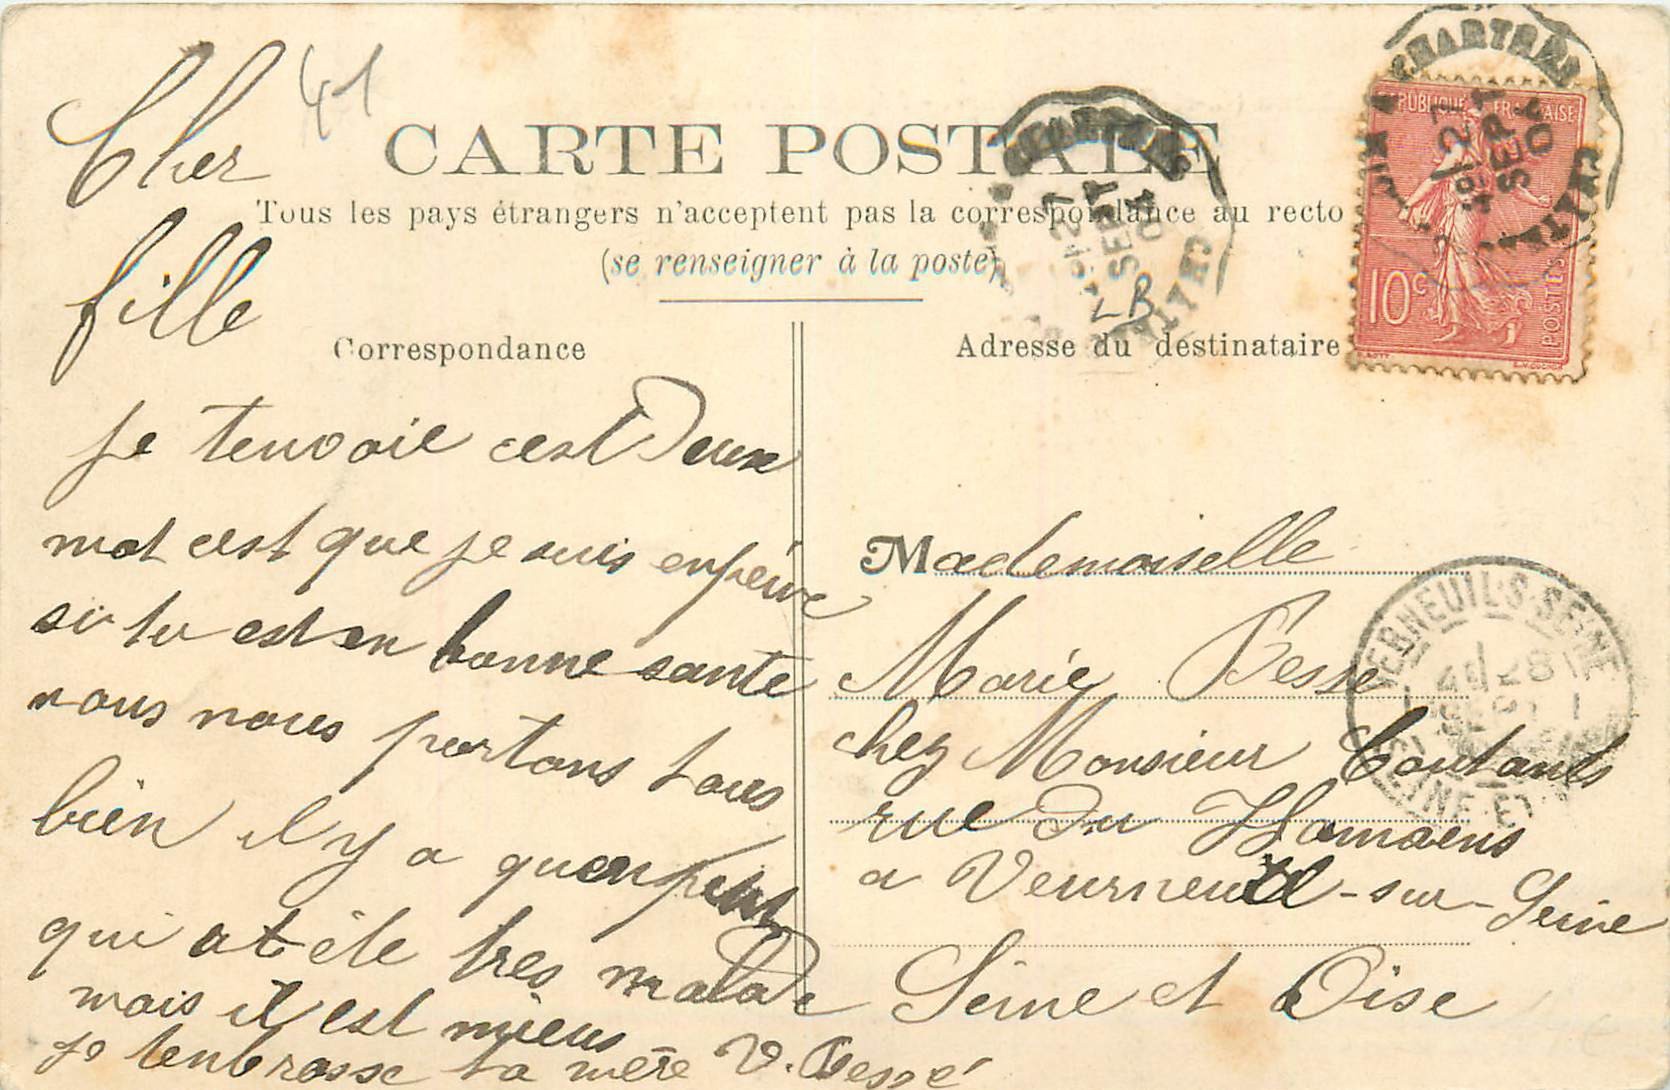 41
CARTE POSTALE
Tous les pays étrangers n'acceptent pas la correspondance au recto
(se renseigner à la poste)
Correspondance
Cher
fille
je tenvoie cest Deux
mot cest que je suis enpeine
si tu est en bonne sante
nous nous portons tous
bien il y a quenpetit
qui at éte tres malade
mais il est mieus
je tenbrasse ta mère V.
Adresse du destinataire
Mademoiselle
Marie Besse
chez Monsieur Coutants
rue Du
a Verneuil-sur-Seine
Seine et Oise
RÉPUBLIQUE FRANÇAISE
10c
POSTES
CHARTRES
27
SEPT
04
27
SEPT
04
LB
VERNEUIL-S-SEINE
28
SEPT
SEINE-ET-